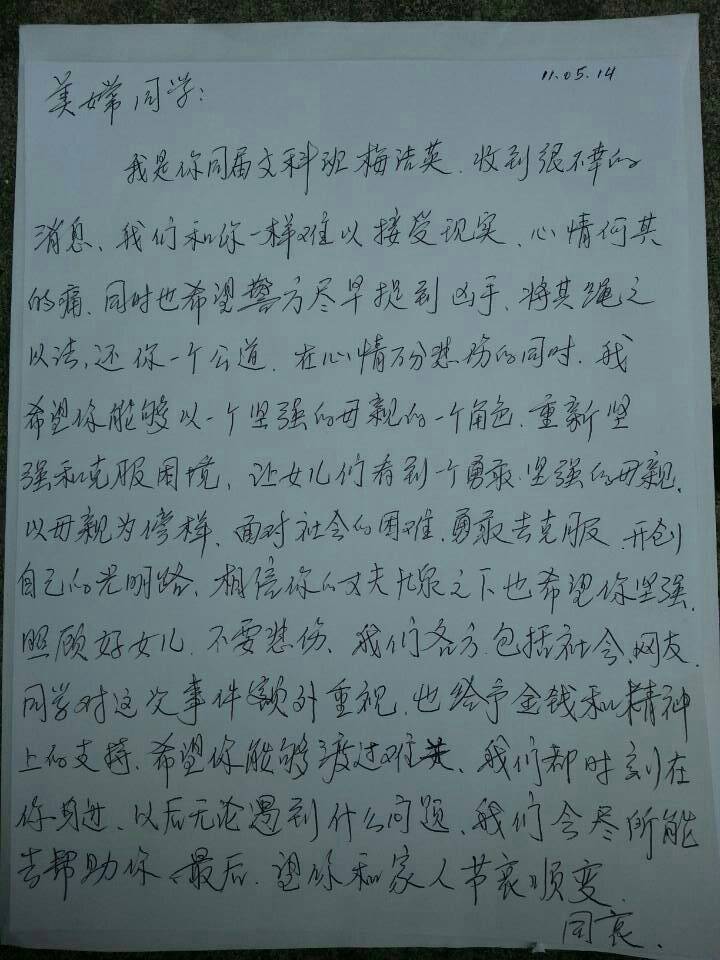 11.05.14
美嫦同学：
我是你同届文科班梅洁英，收到很不幸的
消息、我们和你一样难以接受现实、心情何其
的痛、同时也希望警方尽早捉到凶手、将其绳之
以法，还你一个公道、在心情万分悲伤的同时、我
希望你能够以一个坚强的母亲的一个角色、重新坚
强和克服困境、让女儿们看到一个勇敢坚强的母亲、
以母亲为傍样、面对社会的困难、勇敢去克服、开创
自己的光明路、相信你的丈夫九泉之下也希望你坚强、
照顾好女儿、不要悲伤、我们各方、包括社会、网友、
同学对这次事件额外重视、也给予金钱和精神
上的支持、希望你能够渡过难关、我们都时刻在
你身边、以后无论遇到什么问题、我们会尽所能
去帮助你、最后、望你和家人节哀顺变、
同哀、